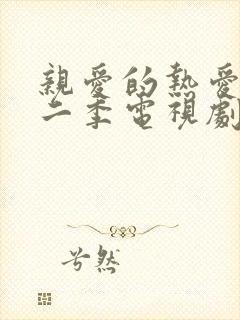 親愛的熱愛
二季電視劇
兮然